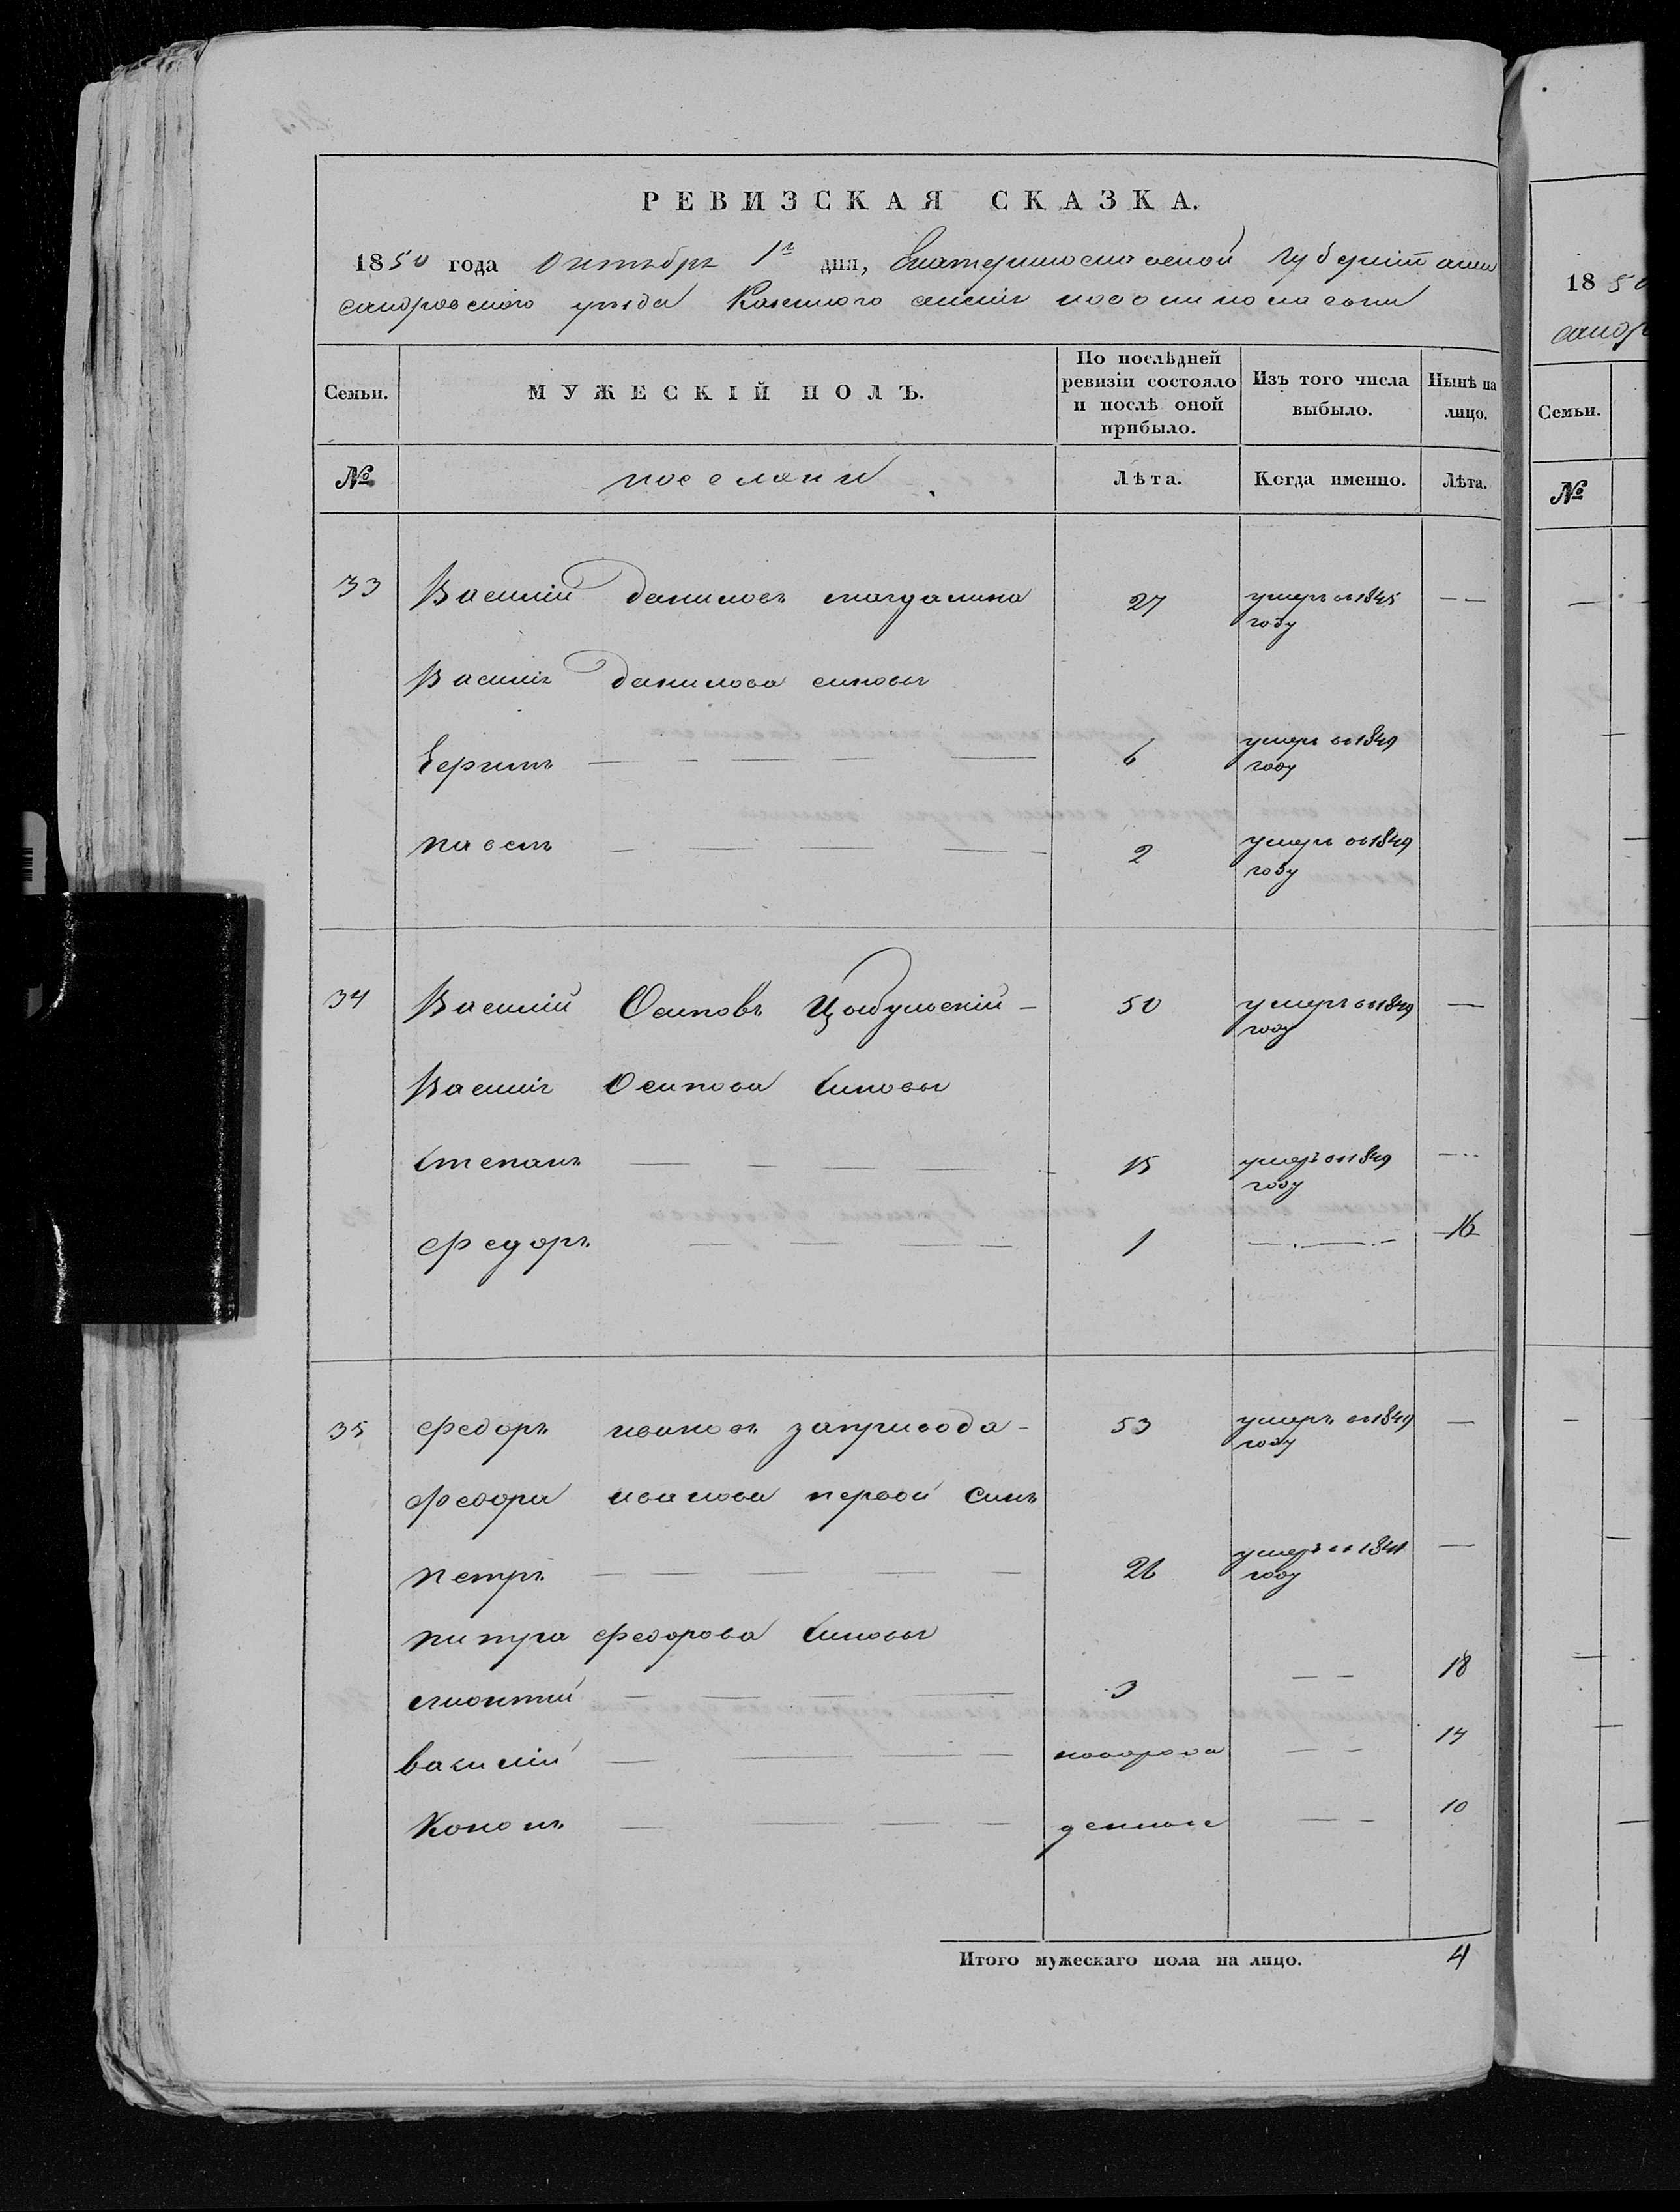 РЕВИЗСКАЯ СКАЗКА.
1850 года Октября 1го дня, Екатеринославской губернiи алек
сандровского уезда Казенного селенiя новониколаевки
Семьи.
МУЖЕСКІЙ ПОЛЪ.
По послѣдней ревизіи состояло и послѣ оной прибыло.
Изъ того числа выбыло.
Нынѣ на лицо.
№
поселяни
Лѣта.
Когда именно.
Лѣта.
33 Василiй Даниловъ магдалина 27 умеръ въ 1845 году — —
Василiя Данилова синовья
Ефимъ 6 умеръ въ 1849 году
павелъ 2 умеръ въ 1849 году
34 Василiй Осиповъ Цыбульскiй — 50 умеръ въ 1849 году —
Василiя Осипова Синовы
Степанъ 15 умеръ въ 1849 году —
Федоръ 1 — 16
35 Федоръ ивановъ заривода — 53 умеръ въ 1849 году —
Федора иванова первой Синъ
петръ 26 умеръ въ 1841 году —
питра Федорова Синовы
3 — — 18
василiй новорож — — 14
Кононъ денные — — 10
Итого мужескаго пола на лицо. 4
18 50
сандр
Семьи.
№